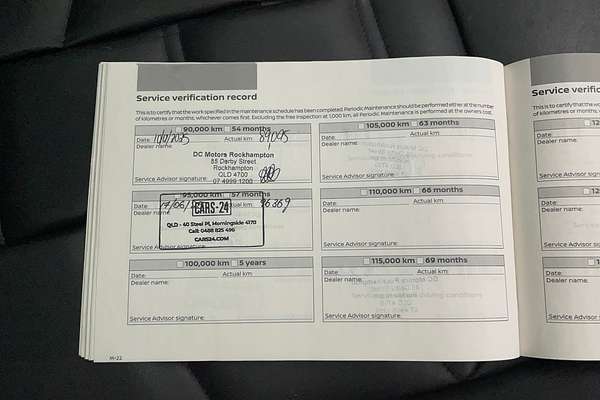 Service verification record
This is to certify that the work specified in the maintenance schedule has been completed. Periodic Maintenance should be performed either at the number
of kilometres or months, whichever comes first. Excluding the free inspection at 1,000 km, all Periodic Maintenance is performed at the owner's cost.
90,000 km 54 months
Date: Actual km: 89095
Dealer name:
DC Motors Rockhampton
85 Derby Street
Rockhampton
QLD 4700
07 4999 1200
Service Advisor signature:
95,000 km 57 months
Date: 96369
Dealer name:
CARS-24
QLD - 40 Steel Pl, Morningside 4170
Call: 0488 825 496
CARS24.COM
Service Advisor signature:
100,000 km 5 years
Date: Actual km:
Dealer name:
Service Advisor signature:
105,000 km 63 months
Date: Actual km:
Dealer name:
Service Advisor signature:
110,000 km 66 months
Date: Actual km:
Dealer name:
Service Advisor signature:
115,000 km 69 months
Date: Actual km:
Dealer name:
Service Advisor signature:
M-22
Service verific
This is to certify that the w
of kilometres or months,
Date:
Dealer name:
Service Advisor sig
Date:
Dealer name:
Service Advisor sig
Date:
Dealer name:
Service Advisor sig